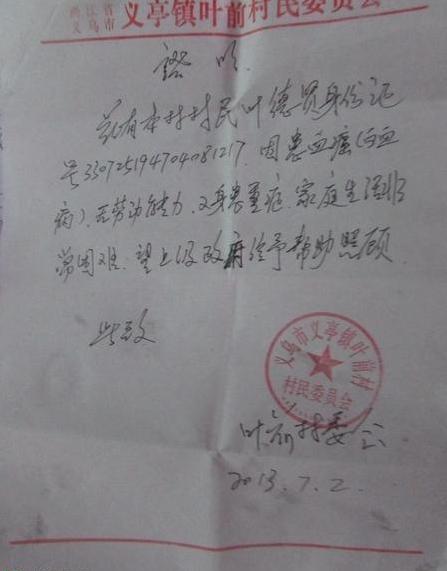 浙江省
义乌市 义亭镇叶前村民委员会
證明
兹有本村村民叶德贤身份证
号330725194704081217.因患血癌(白血
病)、无劳动能力,又身患重症.家庭生活非
常困难.望上级政府给予帮助照顾.
此致
义乌市义亭镇叶前村
村民委员会
叶前村委会
2013.7.2.